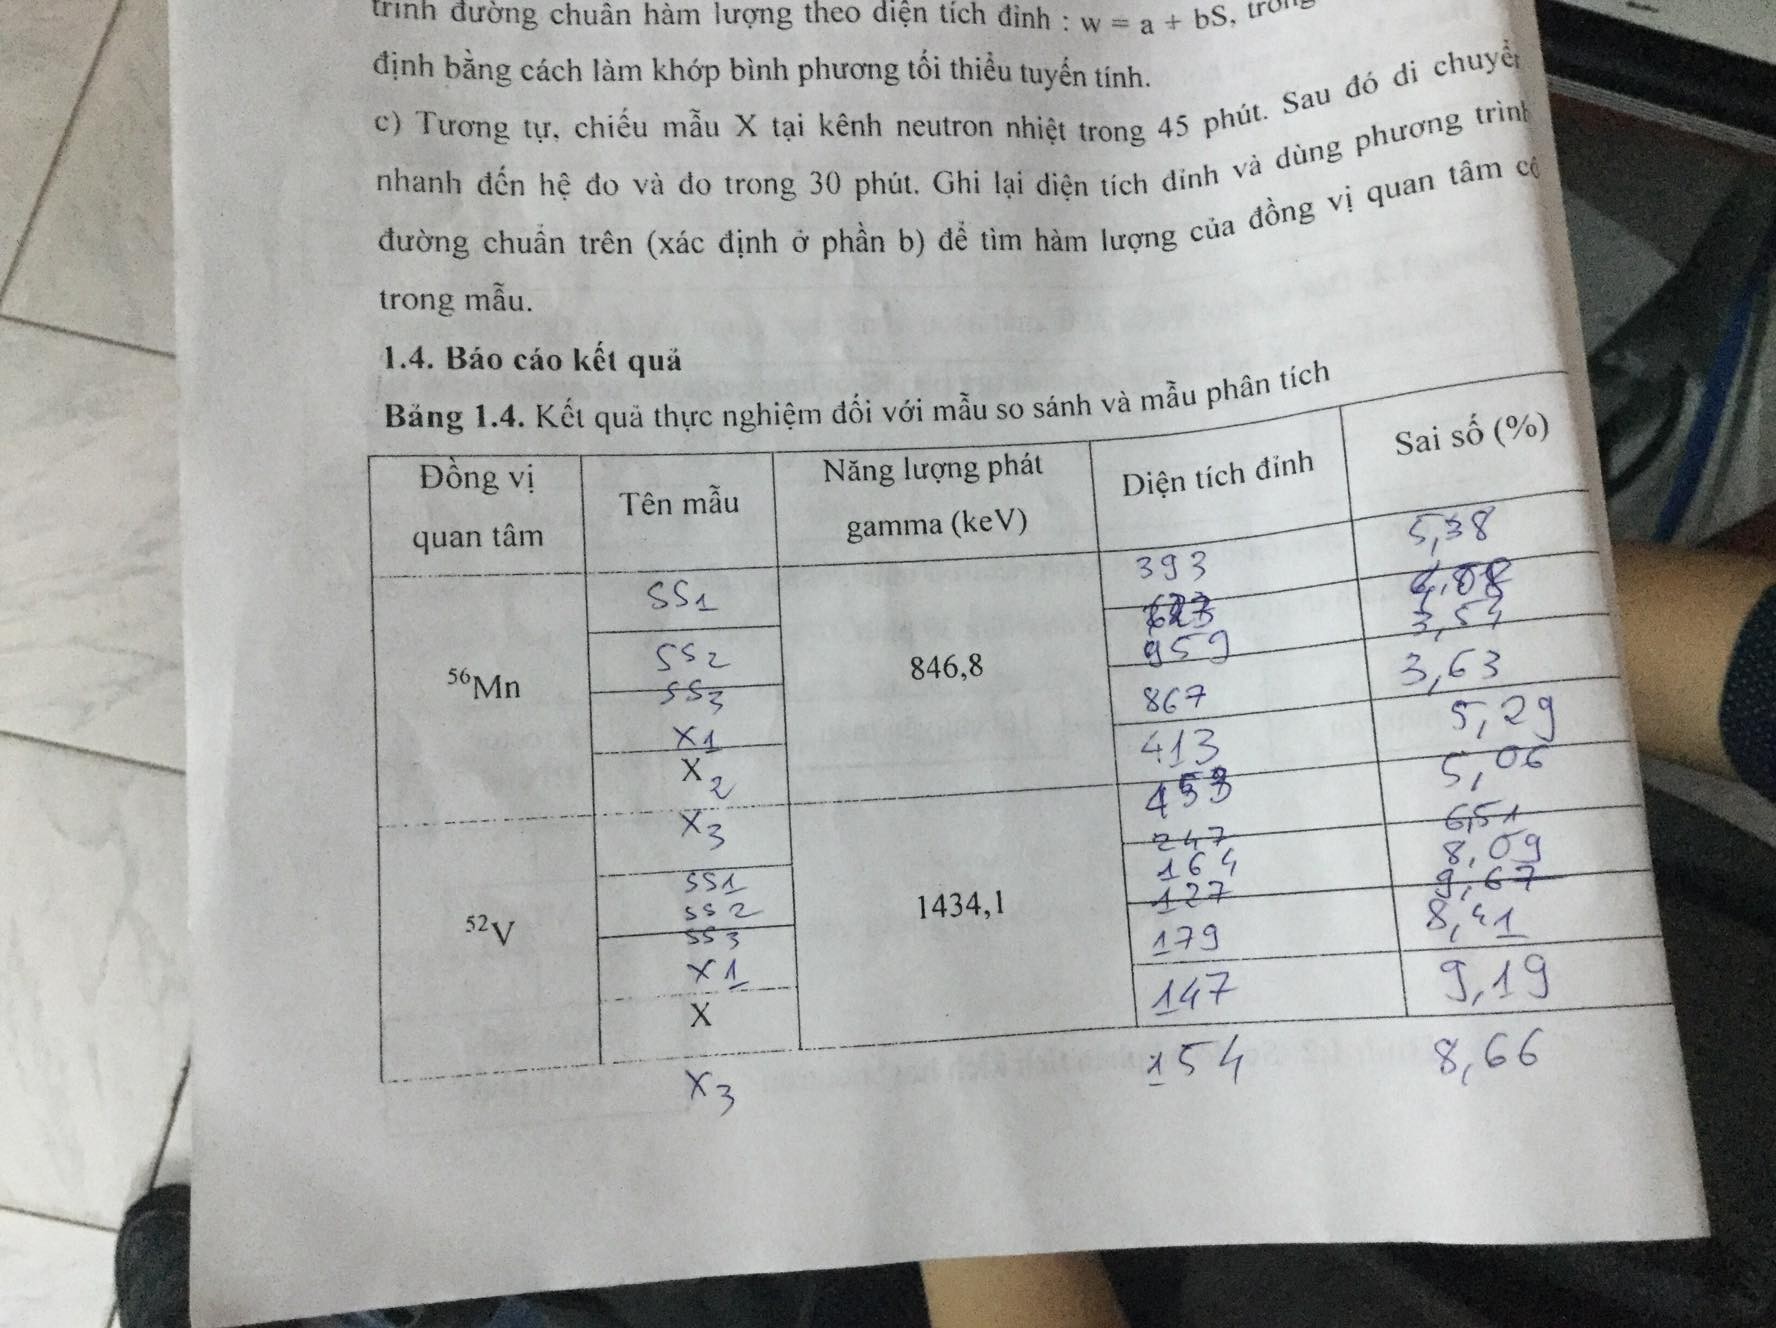 trình đường chuẩn hàm lượng theo diện tích đỉnh : w = a + bS, trong
định bằng cách làm khớp bình phương tối thiểu tuyến tính.
c) Tương tự, chiếu mẫu X tại kênh neutron nhiệt trong 45 phút. Sau đó di chuyển
nhanh đến hệ đo và đo trong 30 phút. Ghi lại diện tích đỉnh và dùng phương trình
đường chuẩn trên (xác định ở phần b) để tìm hàm lượng của đồng vị quan tâm có
trong mẫu.
1.4. Báo cáo kết quả
Bảng 1.4. Kết quả thực nghiệm đối với mẫu so sánh và mẫu phân tích
Đồng vị quan tâm Tên mẫu Năng lượng phát gamma (keV) Diện tích đỉnh Sai số (%)
56Mn 846,8
SS1 393 5,38
SS2
SS3 959 3,54
X1 867 3,63
X2 413 5,29
X3 453 5,06
52V 1434,1
SS1 247 6,51
SS2 164 8,09
SS3 127 9,67
X1 179 8,41
X 147 9,19
X3 154 8,66